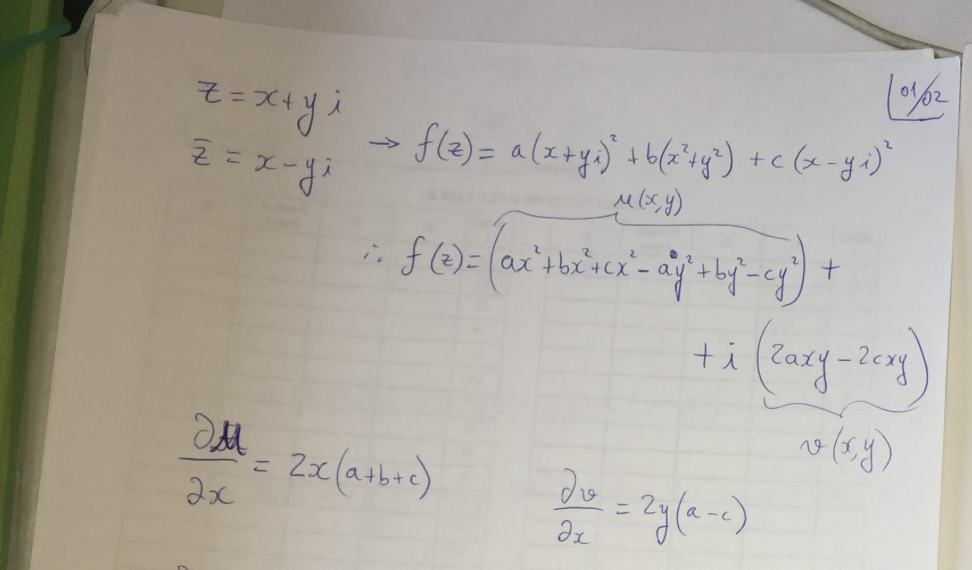 01/02
z = x + yi
z̄ = x - yi → f(z) = a(x+yi)² + b(x²+y²) + c(x-yi)²
u(x,y)
∴ f(z) = (ax² + bx² + cx² - ay² + by² - cy²) +
+ i (2axy - 2cxy)
v(x,y)
∂u/∂x = 2x(a+b+c)
∂v/∂x = 2y(a-c)